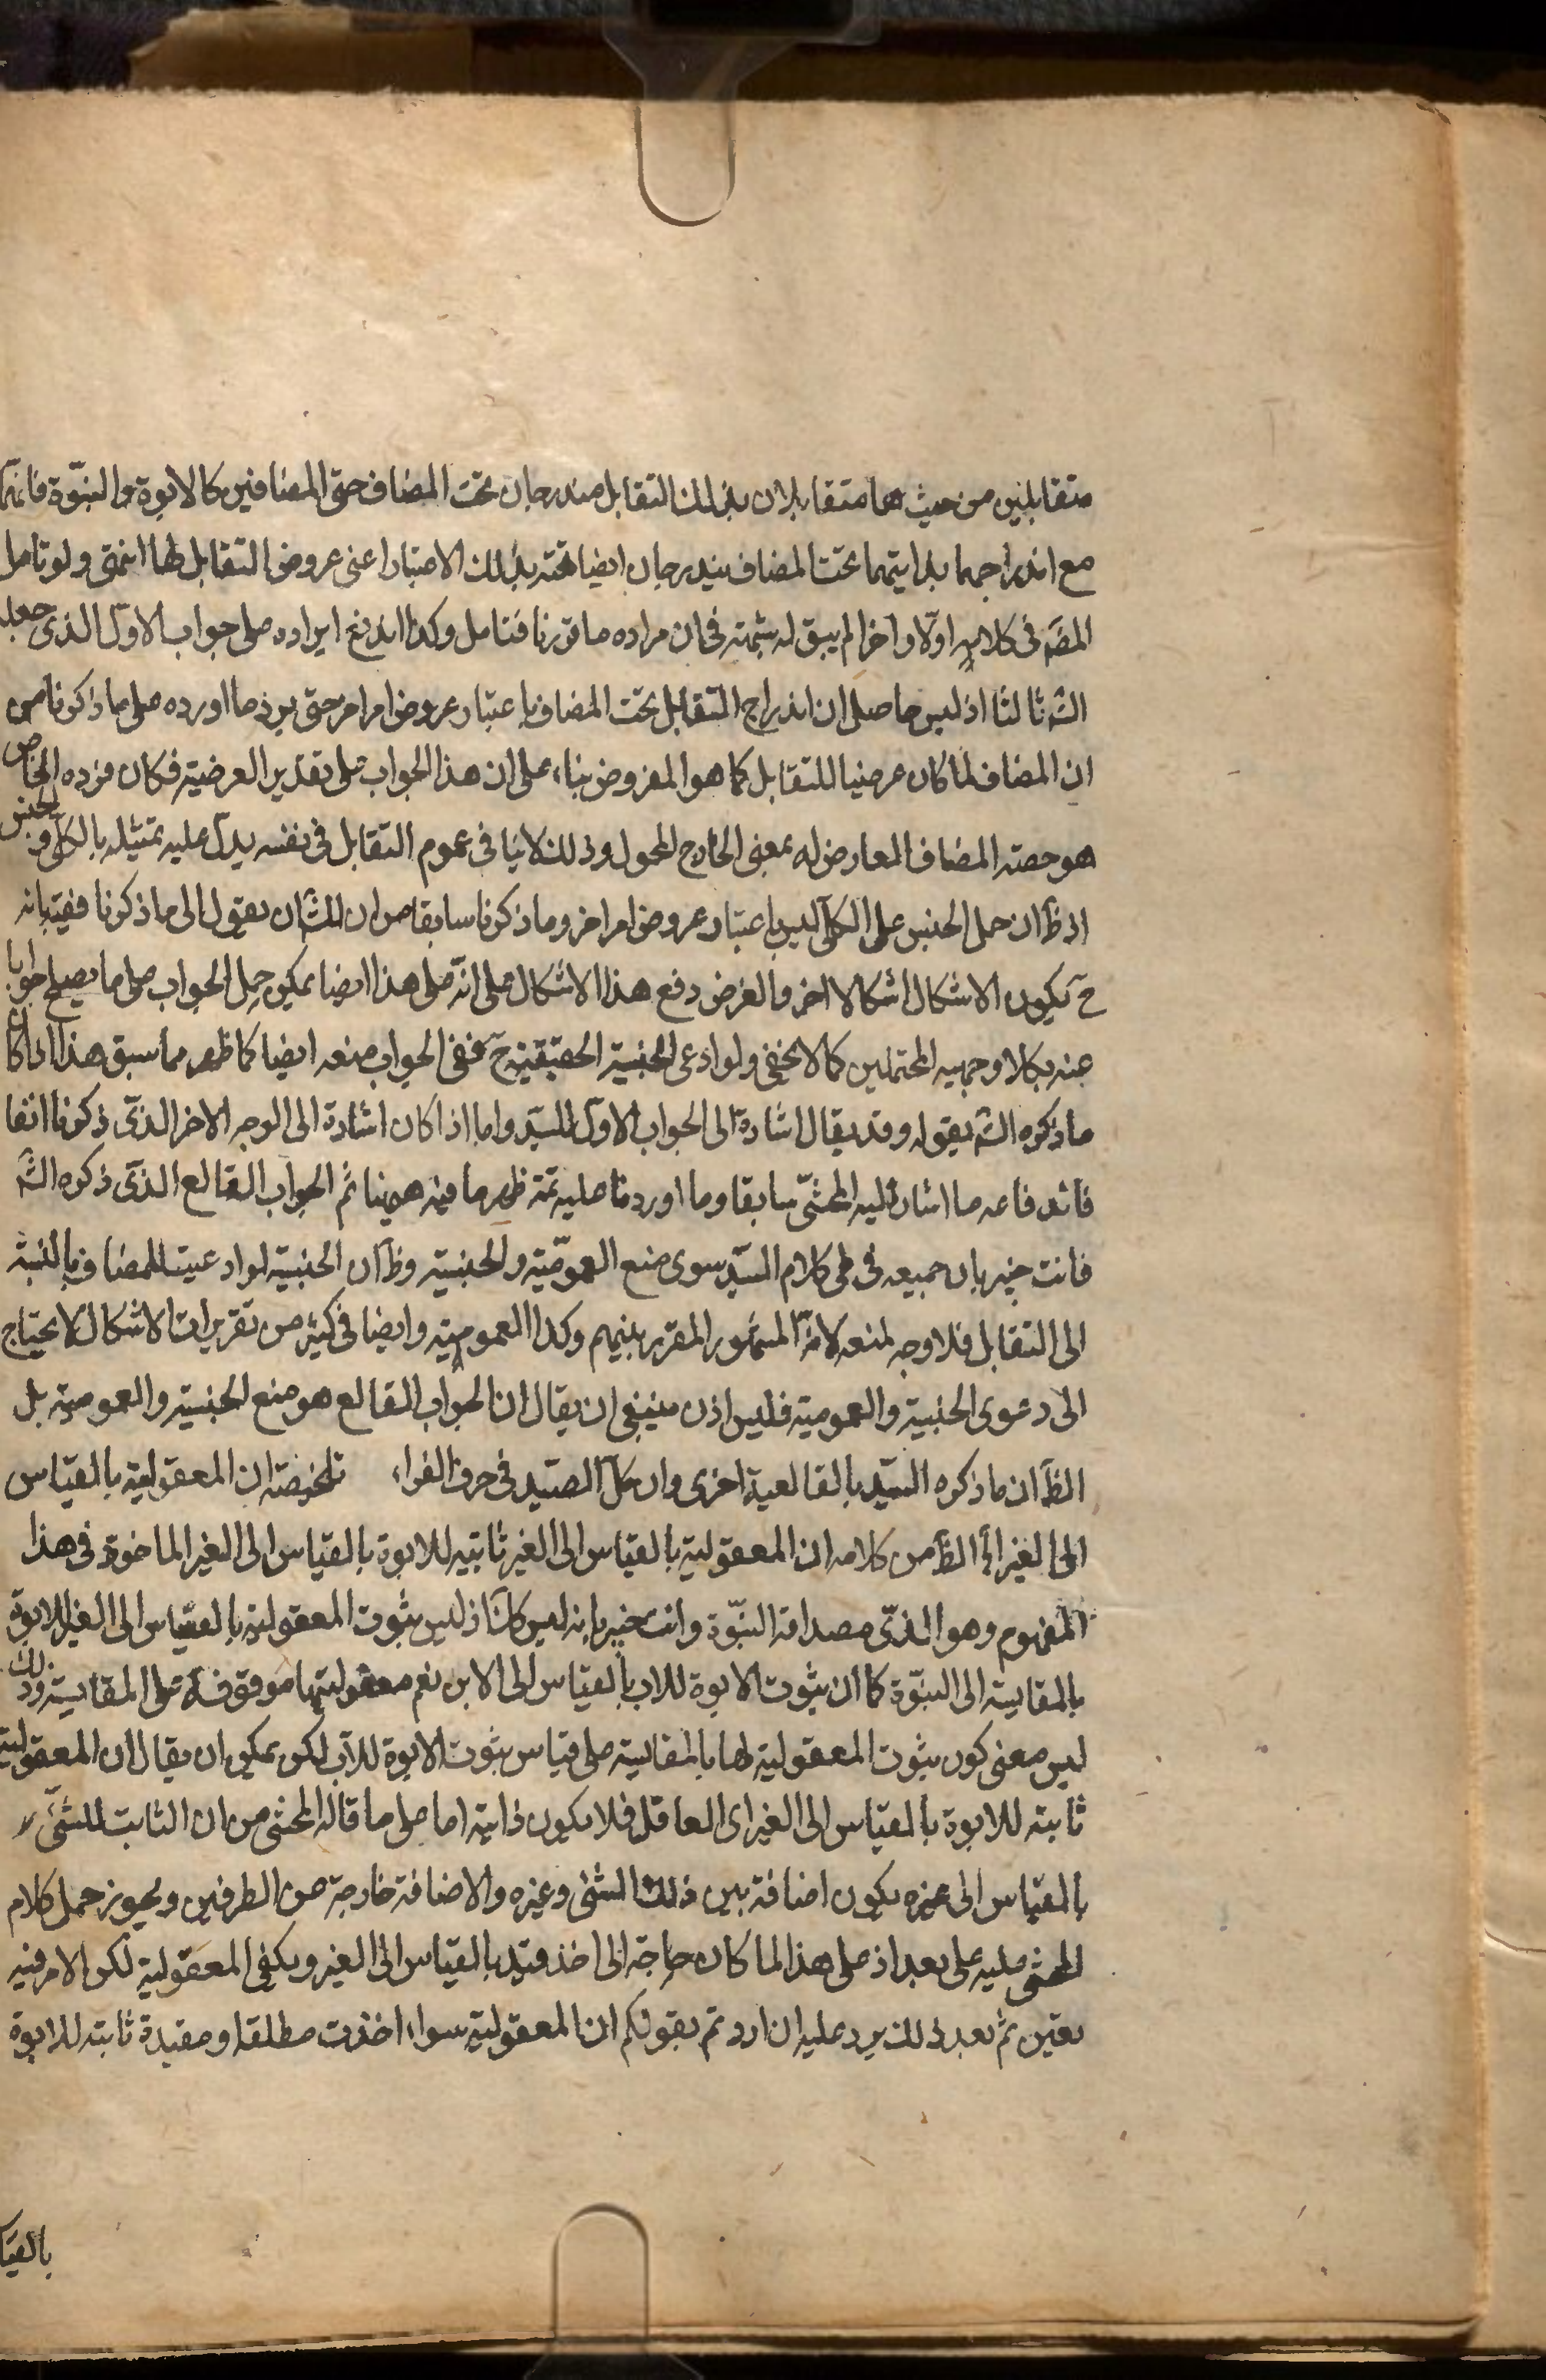 متقابلين من حيث هما متقابلان بذلك التقابل مندرجان تحت المضاف حتى المضافين كالابوة والبنوّة فانهما
مع اندراجهما بذاتيتهما تحت المضاف يندرجان ايضا تحته بذلك الاعتبار اعنى عروض التقابل لها انتهى ولو تامل
المضَ فى كلامه اولا واخرا لم يبق له شبهة فى ان مراده ما قررنا فتامل وكذا اندفع ايراده على جواب الاول الذى جعله
الشَ ثالثا اذ ليس حاصله ان اندراج التقابل تحت المضاف باعتبار عروض امر اخر حتى يرد ما اورده على ما ذكرنا من
ان المضاف لما كان عرضيا للتقابل كما هو المفروض بناء على ان هذا الجواب على تقدير العرضية فكان فرده الخاص
هو حصته المضاف العارض له بمعنى الخارج المحمول وذلك لا ينافى عموم التقابل فى نفسه يدل عليه تمثيله بالكلى والجنس
اذ ظَ ان حمل الجنس على الكلى ليس باعتبار عروض امر اخر وما ذكرنا سابقا من ان للشَ ان يعول الى ما ذكرنا ففيه انه
حَ يكون الاشكال اشكالا اخر والغرض دفع هذا الاشكال على انّه على هذا ايضا يمكن حمل الجواب على ما يصلح جوابا
عنه بكلا وجهيه المحتملين كما لا يخفى ولو ادعى الجنسية الحقيقية حَ ففى الجواب منعه ايضا كما ظهر مما سبق هذا اذا كان
ما ذكره الشَ بقوله وقد يقال اشارة الى الجواب الاول للسيّد واما اذا كان اشارة الى الوجه الاخر الذى ذكرنا انفا
فاندفاعه ما اشار اليه المحشّى سابقا وما اوردنا عليه ثمة ظهر ما فيه هيهنا ثم الجواب القالع الذى ذكره الشَ
فانت خبير بان جميعه فى طى كلام السيّد سوى منع العموميّة والجنسية وظَ ان الجنسية لو ادعيت للمضاف بالنسبة
الى التقابل فلا وجه لمنعه لانه المشهور المقرر بينهم وكذا العمومية وايضا فى كثير من تقريرات الاشكال لا يحتاج
الى دعوى الجنسية والعمومية فليس اذن ينبغى ان يقال ان الجواب القالع هو منع الجنسية والعمومية بل
الظَ ان ما ذكره السيّد بالقالعية احرى وان كل الصيد فى جوف الفراء تلخيصه ان المعقولية بالقياس
الى الغير اه الظَ من كلامه ان المعقولية بالقياس الى الغير ثابتة للابوة بالقياس الى الغير الماخوذ فى هذا
المفهوم وهو الذى مصداقه البنّوة وانت خبير بانه ليس كذلك اذ ليس ثبوت المعقولية بالقياس الى الغير للابوة
بالمقايسة الى البنوّة كما ان ثبوت الابوة للاب بالقياس الى الابن نعم معقوليتها موقوفة على المقايسة وذلك
ليس معنى كون ثبوت المعقولية لها بالمقايسة على قياس ثبوت الابوة للاب لكن يمكن ان يقال ان المعقولية
ثابتة للابوة بالقياس الى الغير اى العاقل فلا يكون ذاتية اما على ما قاله المحشى من ان الثابت للشّئ
بالقياس الى غيره يكون اضافة بين ذلك الشئ وغيره والاضافة خارجة من الطرفين ويجوز حمل كلام
المحشى عليه على بعد اذ على هذا لما كان حاجة الى اخذ قيد بالقياس الى الغير ويكفى المعقولية لكن الامر فيه
يعيّن ثم بعد ذلك يرد عليه ان اردتم بقولكم ان المعقولية سواء اخذت مطلقة او مقيدة ثابتة للابوة